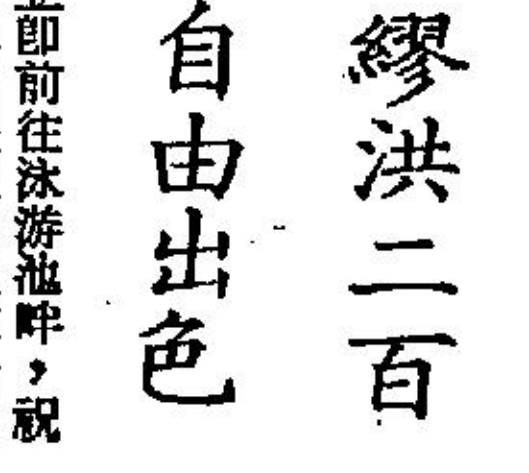 繆洪二百
自由出色
即前往泳游池畔，祝